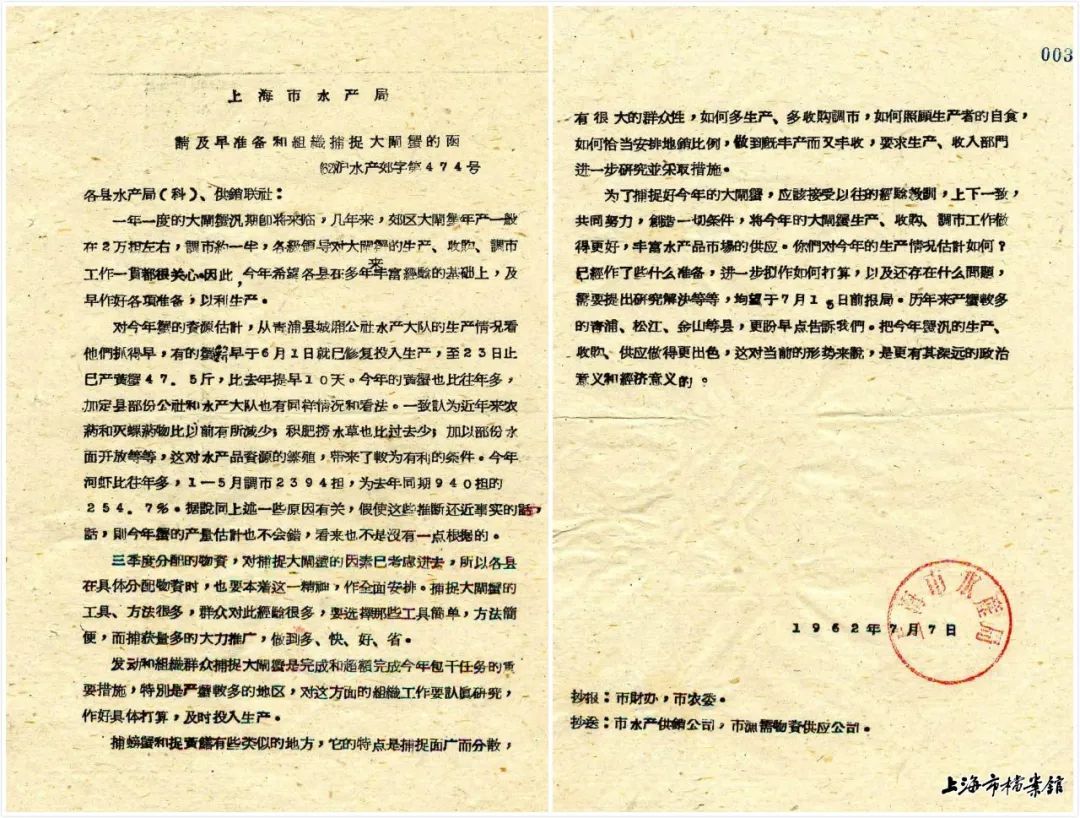 上海市水产局
請及早准备和組織捕捉大閘蟹的函
(62)沪水产郊字第474号
各县水产局（科）、供銷联社：
一年一度的大閘蟹汛期卽将来临，几年来，郊区大閘蟹年产一般
在2万担左右，調市約一半，各級領导对大閘蟹的生产、收购、調市
工作一貫都很关心。因此，今年希望各县在多年来丰富經驗的基础上，及
早作好各項准备，以利生产。
对今年蟹的資源估計，从青浦县城厢公社水产大队的生产情况看
他們抓得早，有的蟹 早于6月1日就已修复投入生产，至23日止
已产黄蟹47．5斤，比去年提早10天。今年的黄蟹也比往年多，
加定县部份公社和水产大队也有同样情况和看法。一致認为近年来农
葯和灭螺葯物比以前有所減少；积肥捞水草也比过去少；加以部份水
面开放等等，这对水产品資源的繁殖，带来了較为有利的条件。今年
河虾比往年多，1—5月調市2394担，为去年同期940担的
254．7％。据說同上述一些原因有关，假使这些推断还近事实的話，
話，則今年蟹的产量估計也不会錯，看来也不是沒有一点根据的。
三季度分配的物資，对捕捉大閘蟹的因素已考慮进去，所以各县
在具体分配物資时，也要本着这一精神，作全面安排。捕捉大閘蟹的
工具、方法很多，群众对此經驗很多，要选擇那些工具简单，方法简
便，而捕获量多的大力推广，做到多、快、好、省。
发动和組織群众捕捉大閘蟹是完成和超額完成今年包干任务的重
要措施，特別是产蟹較多的地区，对这方面的組織工作要認真研究，
作好具体打算，及时投入生产。
捕螃蟹和捉黄鱔有些类似的地方，它的特点是捕捉面广而分散，
003
有很大的群众性，如何多生产、多收购調市，如何照顧生产者的自食，
如何恰当安排地銷比例，做到旣丰产而又丰收，要求生产、收入部門
进一步研究並采取措施。
为了捕捉好今年的大閘蟹，应該接受以往的經驗教訓，上下一致，
共同努力，創造一切条件，将今年的大閘蟹生产、收购、調市工作做
得更好，丰富水产品市場的供应。你們对今年的生产情况估計如何？
已經作了些什么准备，进一步拟作如何打算，以及还存在什么問題，
需要提出研究解决等等，均望于7月15日前报局。历年来产蟹較多
的青浦、松江、金山等县，更盼早点告訴我們。把今年蟹汛的生产、
收购、供应做得更出色，这对当前的形势来說，是更有其深远的政治
意义和經济意义的。
上海市水產局
1962年7月7日
抄报：市財办，市农委。
抄送：市水产供銷公司，市漁需物資供应公司。
上海市檔案館